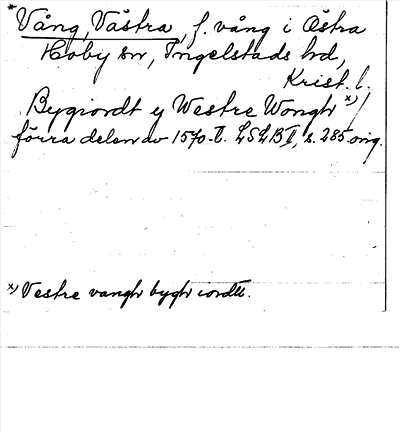 *Vång, Västra, f. vång i Östra
Hoby sn, Ingelstads hd,
Krist. l.
Bygiordt y Westre Wongh x)/
förra delen av 1570-t. LSLB II, s. 285 orig.
x) Vestre vangh bygh iordtt.